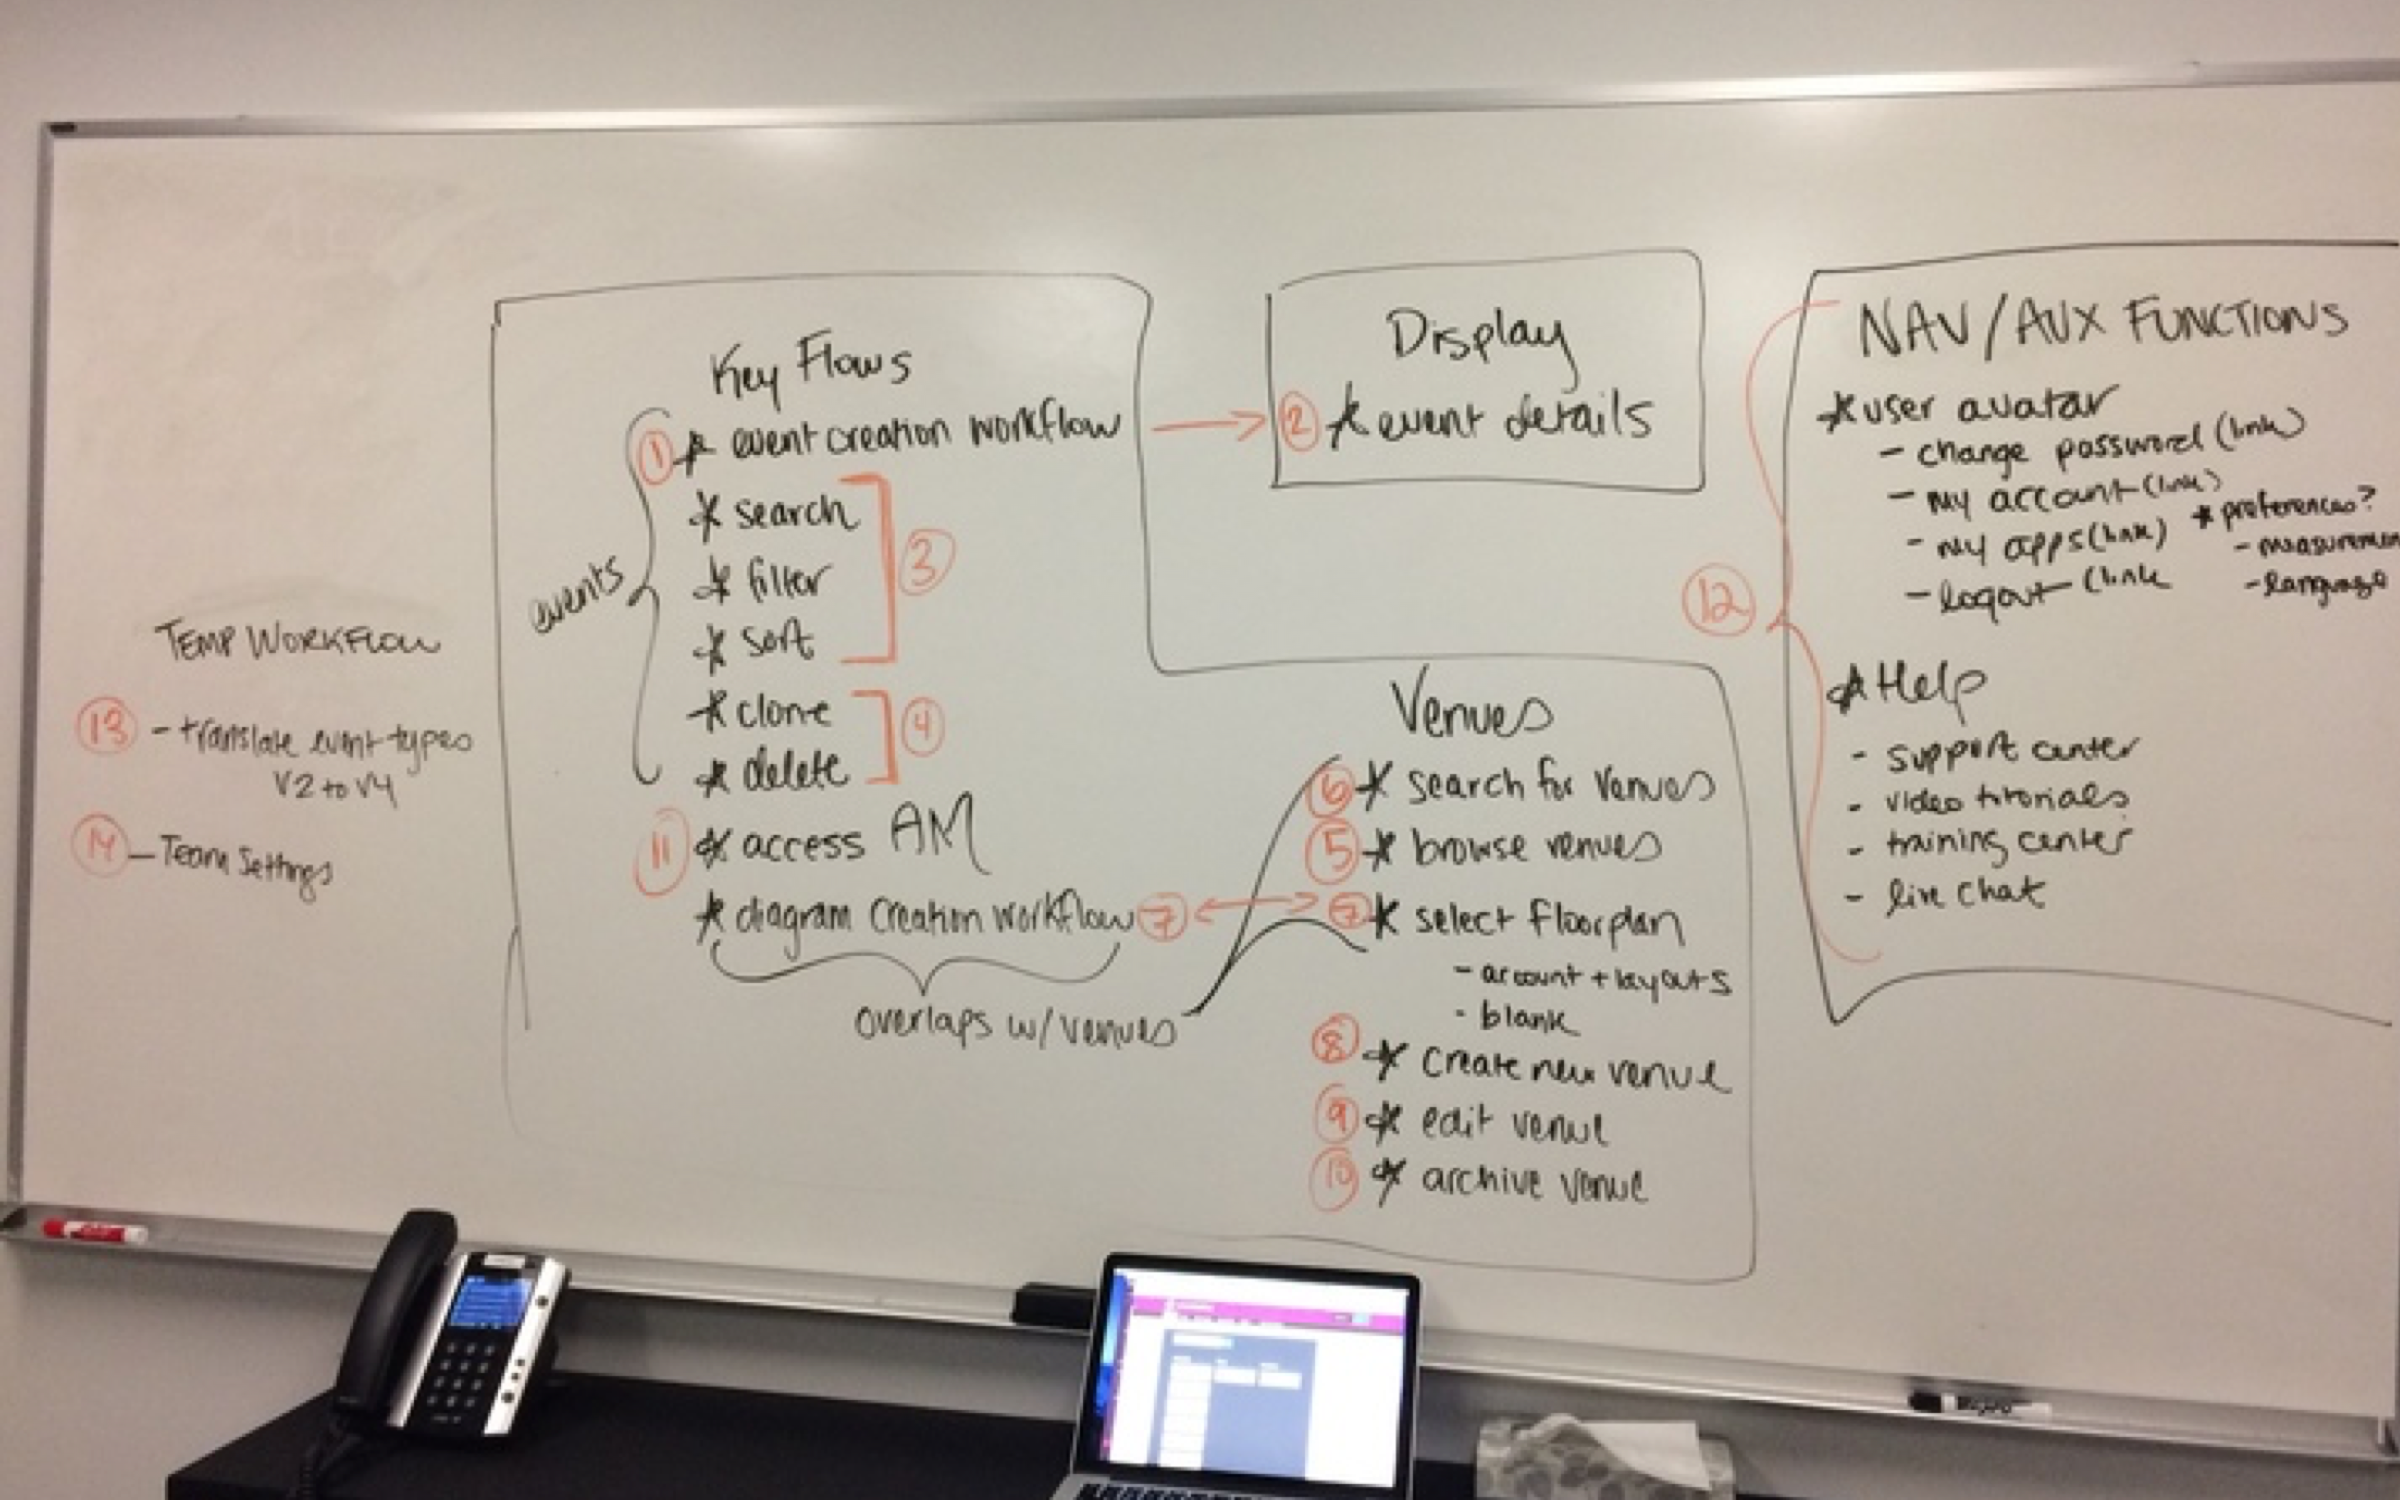 TEMP WORKFLOW
13 - translate event types
V2 to V4
14 - Team Settings
Key Flows
events
1 * event creation workflow
* search
* filter
* sort
3
* clone
* delete
4
11 * access AM
* diagram creation workflow 7
overlaps w/ venues
Display
2 * event details
Venues
6 * search for venues
5 * browse venues
7 * select floorplan
- account + layouts
- blank
8 * create new venue
9 * edit venue
10 * archive venue
12
NAV/AUX FUNCTIONS
* user avatar
- change password (link)
- my account (link)
- my apps (link)
- logout (link
* preferences?
- measuremen
- language
* Help
- support center
- video tutorials
- training center
- live chat